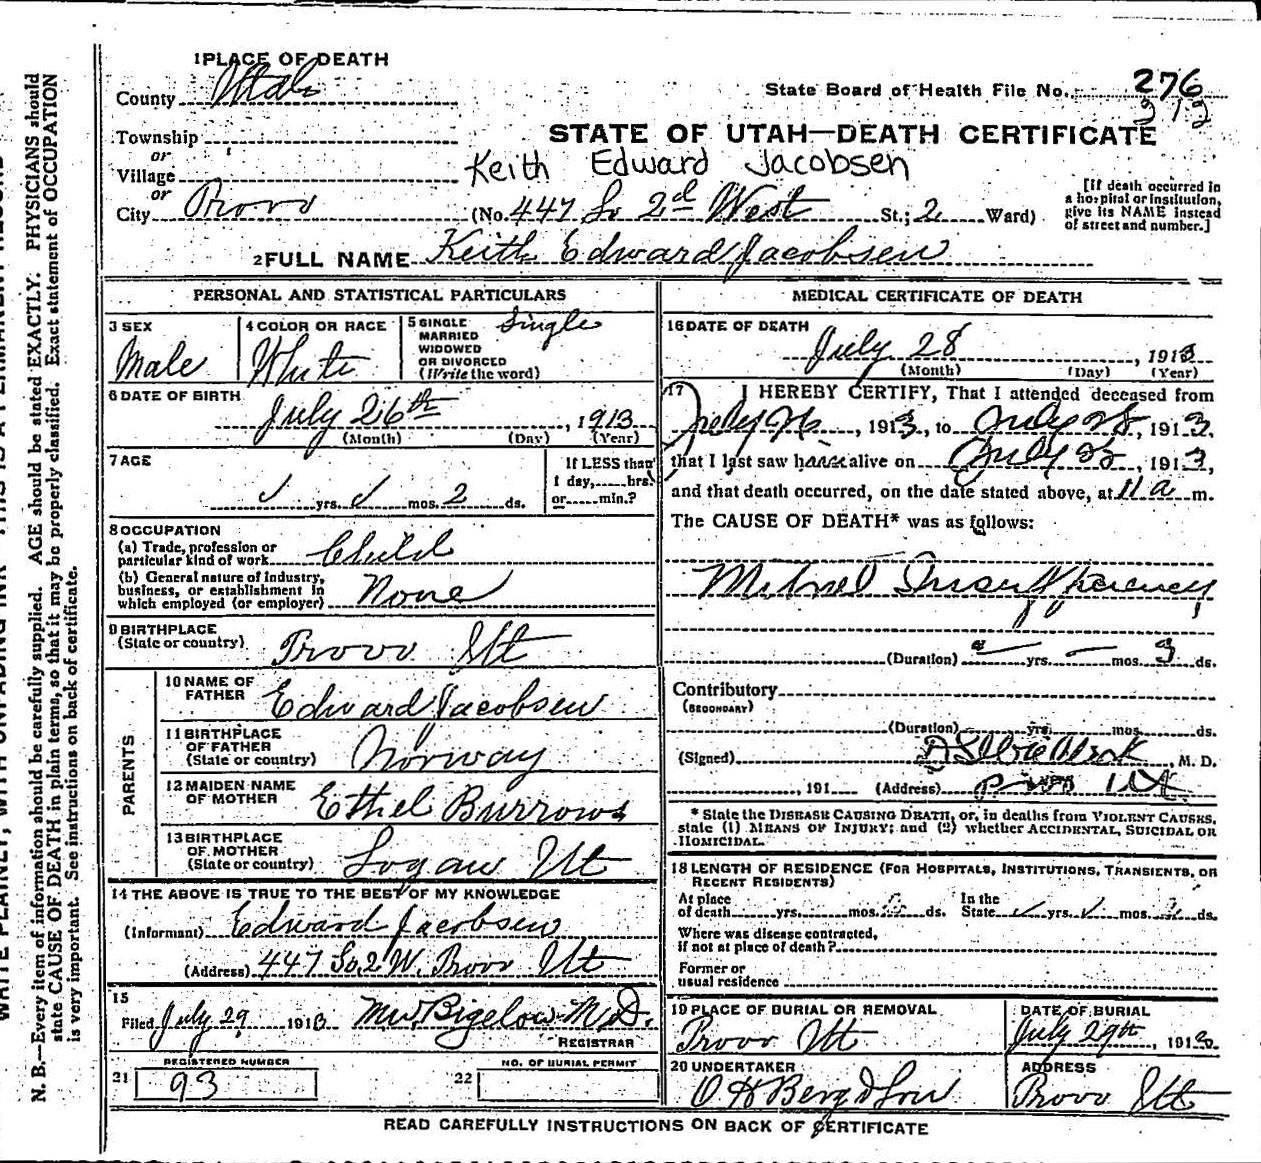 1 PLACE OF DEATH
County Utah
State Board of Health File No. 276
212
Township
STATE OF UTAH—DEATH CERTIFICATE
or
Village
Keith Edward Jacobsen
or
City Provo (No. 447 So 2d West St.; 2 Ward)
[If death occurred in
a hospital or institution,
give its NAME instead
of street and number.]
2 FULL NAME Keith Edward Jacobsen
PERSONAL AND STATISTICAL PARTICULARS
3 SEX
Male
4 COLOR OR RACE
White
5 SINGLE
MARRIED
WIDOWED
OR DIVORCED
(Write the word)
Single
6 DATE OF BIRTH
July 26th, 1913
(Month) (Day) (Year)
7 AGE
yrs. mos. 2 ds.
If LESS than
1 day, hrs.
or min.?
8 OCCUPATION
(a) Trade, profession or
particular kind of work Child
(b) General nature of industry,
business, or establishment in
which employed (or employer) None
9 BIRTHPLACE
(State or country) Provo Ut
PARENTS
10 NAME OF
FATHER Edward Jacobsen
11 BIRTHPLACE
OF FATHER
(State or country) Norway
12 MAIDEN NAME
OF MOTHER Ethel Burrows
13 BIRTHPLACE
OF MOTHER
(State or country) Logan Ut
14 THE ABOVE IS TRUE TO THE BEST OF MY KNOWLEDGE
(Informant) Edward Jacobsen
(Address) 447 So. 2 W. Provo Ut
15
Filed July 29 1913 Mw. Bigelow M.D.
REGISTRAR
REGISTERED NUMBER
21 93
NO. OF BURIAL PERMIT
22
MEDICAL CERTIFICATE OF DEATH
16 DATE OF DEATH
July 28, 1913
(Month) (Day) (Year)
17 I HEREBY CERTIFY, That I attended deceased from
July 26, 1913, to July 28, 1913,
that I last saw h alive on July 28, 1913,
and that death occurred, on the date stated above, at 11 a m.
The CAUSE OF DEATH* was as follows:
Mitral Insufficiency
(Duration) yrs. mos. 3 ds.
Contributory
(SECONDARY)
(Duration) yrs. mos. ds.
(Signed) , M. D.
, 191 (Address) Provo Ut.
* State the DISEASE CAUSING DEATH, or, in deaths from VIOLENT CAUSES,
state (1) MEANS OF INJURY; and (2) whether ACCIDENTAL, SUICIDAL OR
HOMICIDAL.
18 LENGTH OF RESIDENCE (FOR HOSPITALS, INSTITUTIONS, TRANSIENTS, OR
RECENT RESIDENTS)
At place
of death yrs. mos. ds.
In the
State yrs. mos. 2 ds.
Where was disease contracted,
if not at place of death?
Former or
usual residence
19 PLACE OF BURIAL OR REMOVAL
Provo Ut
DATE OF BURIAL
July 29th, 1913
20 UNDERTAKER
O H Berg & Son
ADDRESS
Provo Ut
READ CAREFULLY INSTRUCTIONS ON BACK OF CERTIFICATE
N. B.—Every item of information should be carefully supplied. AGE should be stated EXACTLY. PHYSICIANS should
state CAUSE OF DEATH in plain terms, so that it may be properly classified. Exact statement of OCCUPATION
is very important. See instructions on back of certificate.